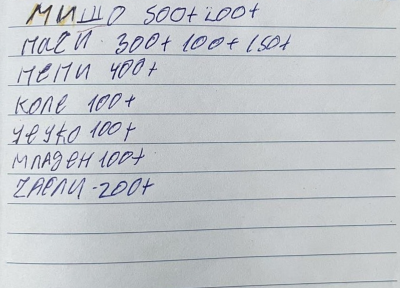 МИШО 500+200+
МАСИ 300+100+150+
МЕМИ 400+
КОЛЕ 100+
ЧЕУКО 100+
МЛАДЕН 100+
ЧАРЛИ-200+